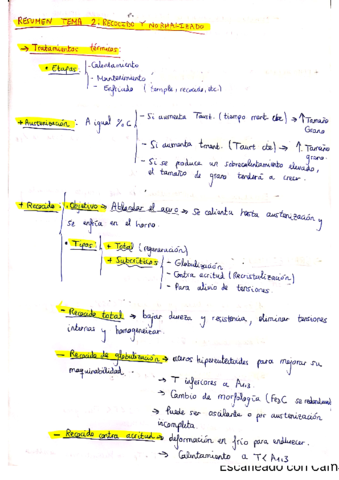 RESUMEN TEMA 2: RECOCIDO Y NORMALIZADO
→ Tratamientos térmicos:
• Etapas: - Calentamiento
- Mantenimiento
- Enfriado (temple, recocido, etc)
• Austenización: A igual % C
- Si aumenta Taust. (tiempo mant. cte) → ↑ Tamaño Grano
- Si aumenta tmant. (Taust cte) → ↑ Tamaño grano.
- Si se produce un sobrecalentamiento elevado,
el tamaño de grano tenderá a crecer.
• Recocido: • Objetivo → Ablandar el acero → Se calienta hasta austenización y
se enfría en el horno.
• Tipos: + Total (regeneración)
+ Subcríticos: - Globulización
- Contra acritud (Recristalización)
- Para alivio de tensiones.
- Recocido total → bajar dureza y resistencia, eliminar tensiones
internas y homogeneizar.
- Recocido de globulización → aceros hipereutectoides para mejorar su
maquinabilidad.
→ T inferiores a Ar1,3
→ Cambio de morfología (Fe3C se redondea)
→ Puede ser oscilante o por austenización
incompleta.
- Recocido contra acritud → deformación en frío para endurecer.
→ Calentamiento a T<A1,3
Escaneado con Cam